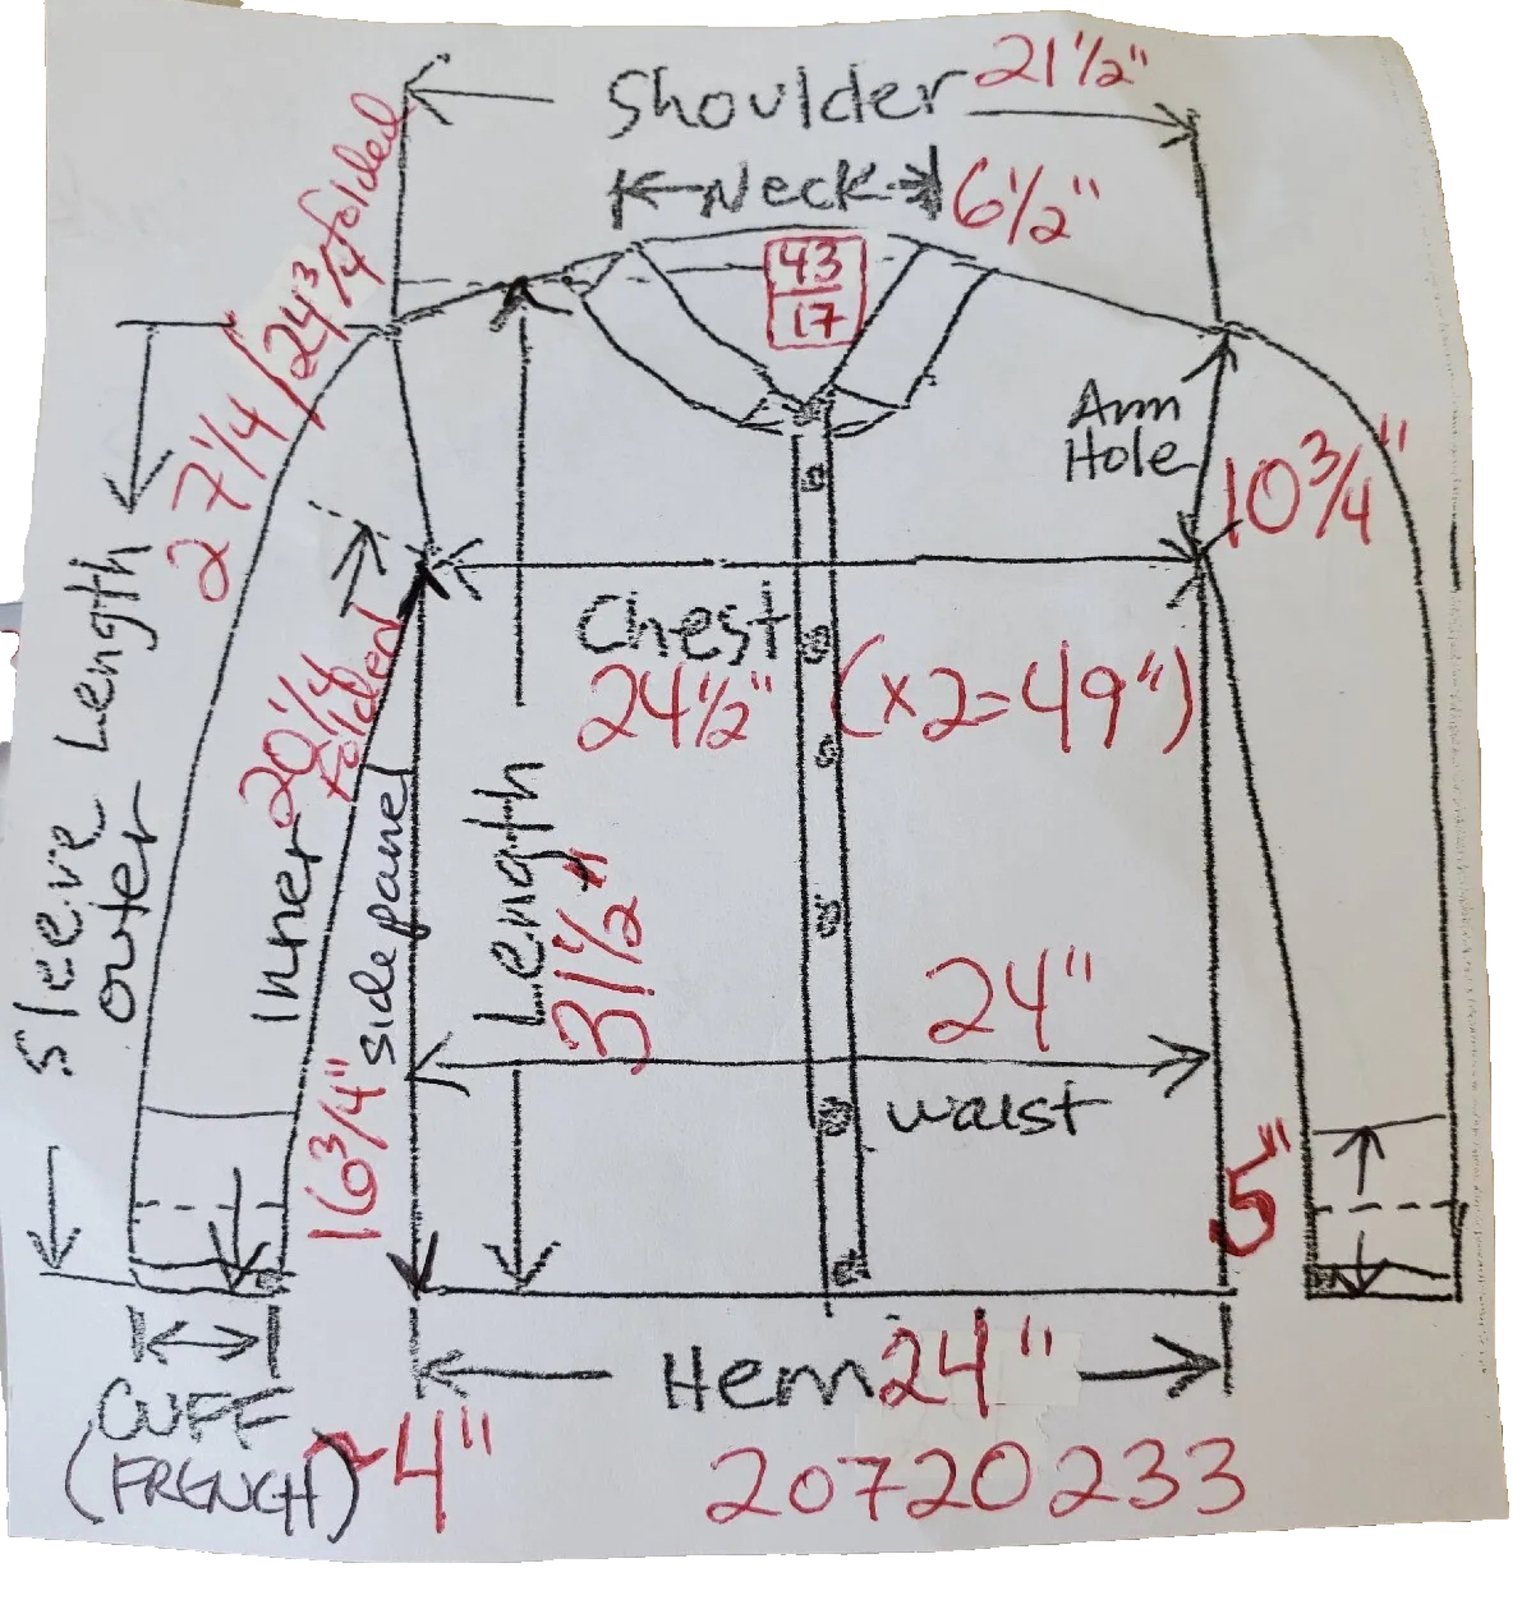 Shoulder 21 1/2"
Neck 6 1/2"
43
17
27 1/4 / 24 3/4 folded
Arm
Hole
10 3/4"
Chest
24 1/2" (x2=49")
Sleeve Length
outer
Inner
20 1/4
folded
side panel
16 3/4"
Length
31 1/2"
24"
waist
5"
Hem 24"
CUFF
(FRENCH) ~4"
20720233